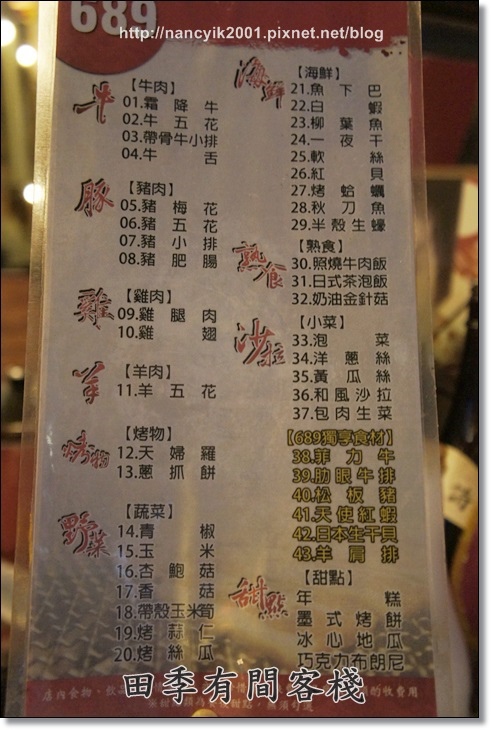 689
http://nancyik2001.pixnet.net/blog
牛
【牛肉】
01.霜降牛
02.牛五花
03.帶骨牛小排
04.牛舌
豚
【豬肉】
05.豬梅花
06.豬五花
07.豬小排
08.豬肥腸
雞
【雞肉】
09.雞腿肉
10.雞翅
羊
【羊肉】
11.羊五花
烤物
【烤物】
12.天婦羅
13.蔥抓餅
野菜
【蔬菜】
14.青椒
15.玉米
16.杏鮑菇
17.香菇
18.帶殼玉米筍
19.烤蒜仁
20.烤絲瓜
海鮮
【海鮮】
21.魚下巴
22.白蝦
23.柳葉魚
24.一夜干
25.軟絲
26.紅貝
27.烤蛤蠣
28.秋刀魚
29.半殼生蠔
熟食
【熟食】
30.照燒牛肉飯
31.日式茶泡飯
32.奶油金針菇
沙拉
【小菜】
33.泡菜
34.洋蔥絲
35.黃瓜絲
36.和風沙拉
37.包肉生菜
【689獨享食材】
38.菲力牛
39.肋眼牛排
40.松板豬
41.天使紅蝦
42.日本生干貝
43.羊肩排
甜點
【甜點】
年糕
墨式烤餅
冰心地瓜
巧克力布朗尼
店內食物、飲品
的收費用
田季有間客棧